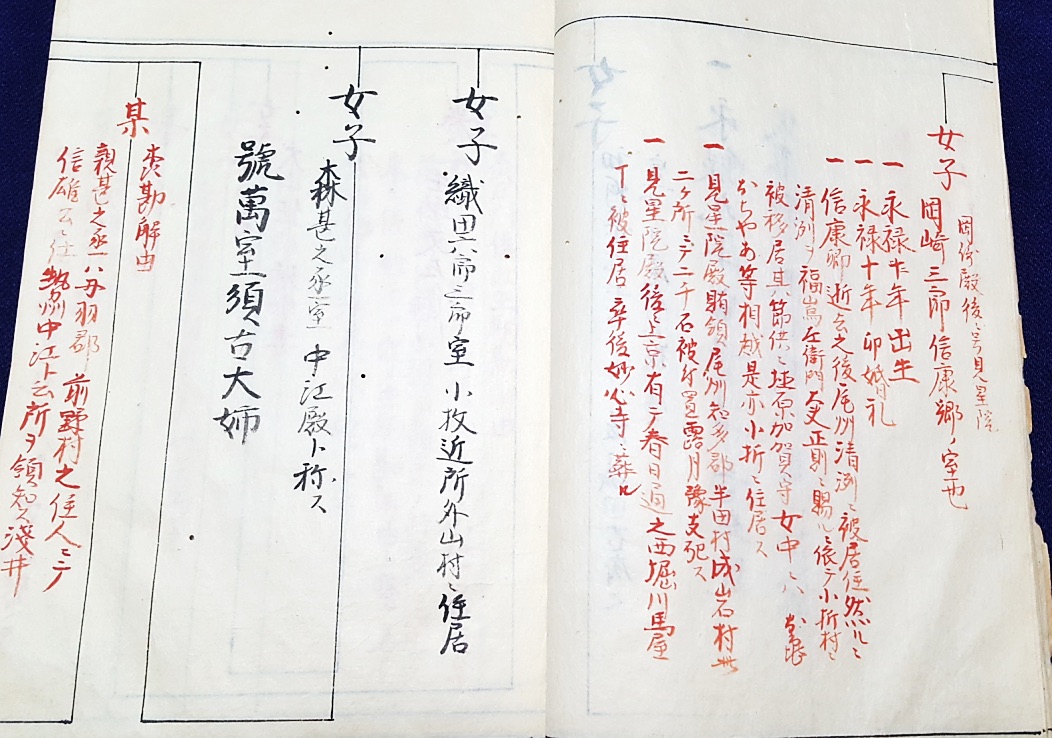 女子
岡崎殿後ニ号見星院
岡崎三郎信康郷ノ室也
一 永禄 年出生
一 永禄十年 卯婚礼
一 信康卿逝去之後尾州清洲ニ被居住然ルニ
清洲ヲ福嶌左衛門大夫正則ニ賜ルニ依テ小折村ニ
被移居其節供ニ 原加賀守女中ニハ
おちやあ等相越是亦小折ニ住居ス
一 見星院殿賄領尾州知多郡半田村成岩村
二ケ所ニテ二千石被 置 月豫支死ス
一 見星院殿後上京有テ春日通之西堀川馬屋
丁ニ被住居卒後妙心寺ニ葬ル
女子
織田六郎三郎室 小牧近所外山村ニ住居
女子
森甚之丞室 中江殿ト称ス
號萬室須古大姉
某
森勘解由
親甚之丞ハ丹羽郡前野村之住人ニテ
信雄公ニ仕勢州中江ト云所ヲ領知ス淺井